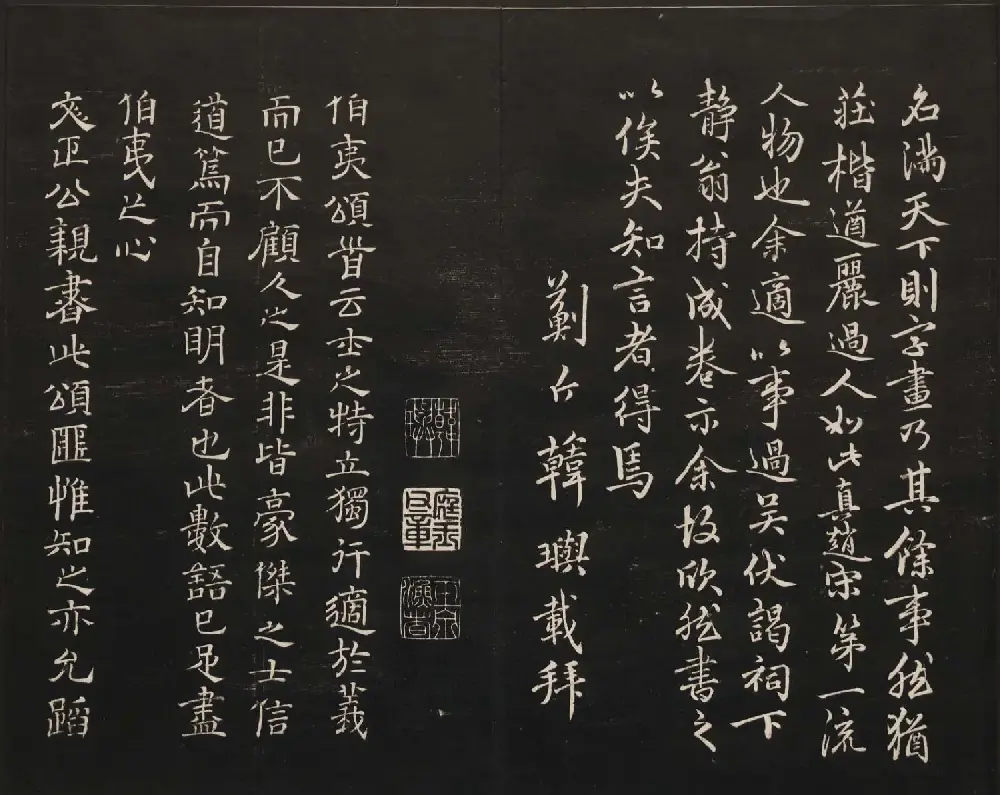 名滿天下則字畫乃其餘事然猶
莊楷遒麗過人如此真趙宋第一流
人物也余適以事過吴伏謁祠下
静翁持成卷示余故欣然書之
以俟夫知言者得焉
薊丘韓璵載拜
伯夷頌首云士之特立獨行適於義
而已不顧人之是非皆豪傑之士信
道篤而自知明者也此數語已足盡
伯夷之心
文正公親書此頌匪惟知之亦允蹈